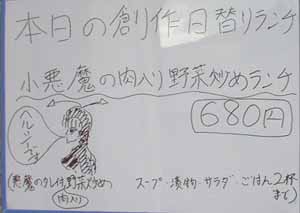 本日の創作日替りランチ
小悪魔の肉入り野菜炒めランチ
680円
ヘルシーです
(悪魔のタレ付野菜炒め)
肉入り
スープ・漬物・サラダ・ごはん2杯
まで)